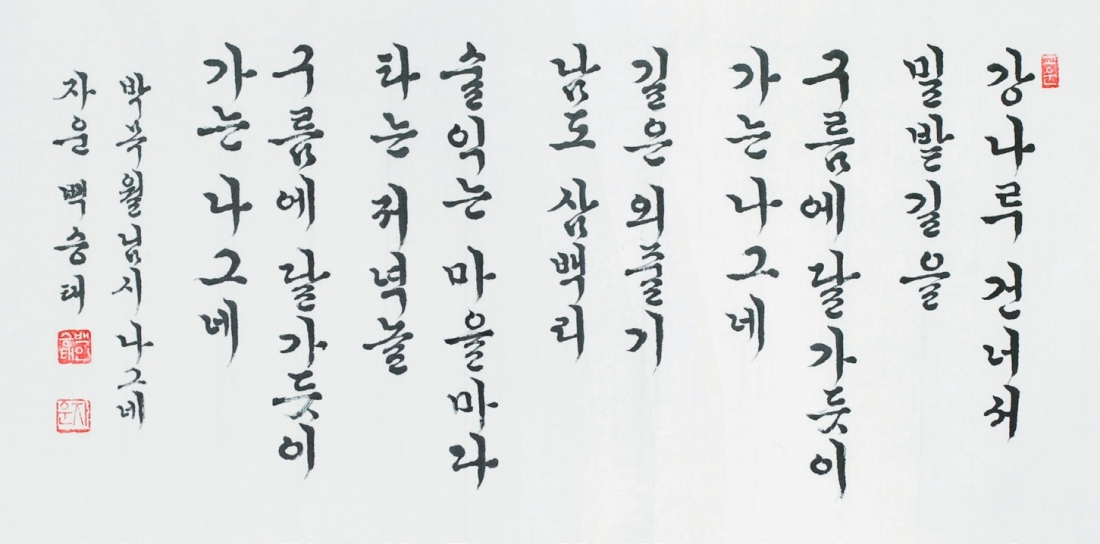 강나루 건너서
밀밭길을
구름에 달 가듯이
가는 나그네
길은 외줄기
남도 삼백리
술 익는 마을마다
타는 저녁놀
구름에 달 가듯이
가는 나그네
박목월님 시 나그네
자운 백승태
자운